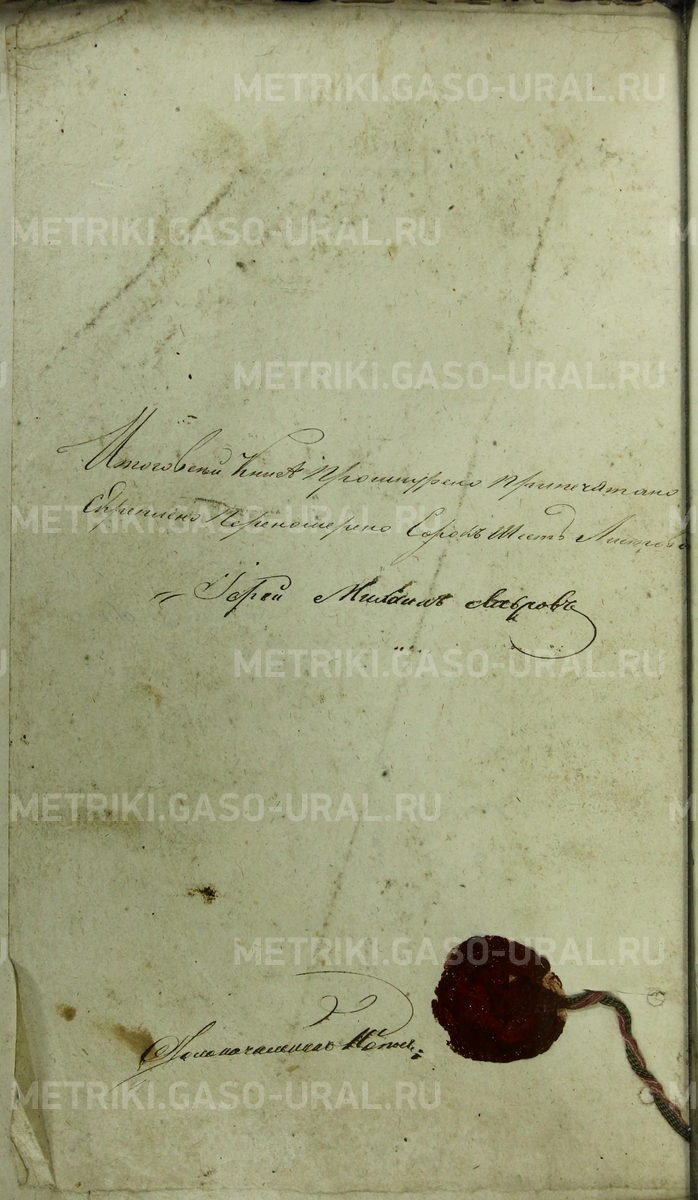 METRIKI.GASO-URAL.RU
METRIKI.GASO-URAL.RU
METRIKI.GASO-URAL.RU
Итого всей Книге прошнурено припечатано
METRIKI.GASO-URAL.RU
Скреплено Переномерено Сорокъ Шесть Листовъ
Іерей Михаилъ Лавровъ
METRIKI.GASO-URAL.RU
METRIKI.GASO-URAL.RU
METRIKI.GASO-URAL.RU
Столоначальникъ
METRIKI.GASO-URAL.RU